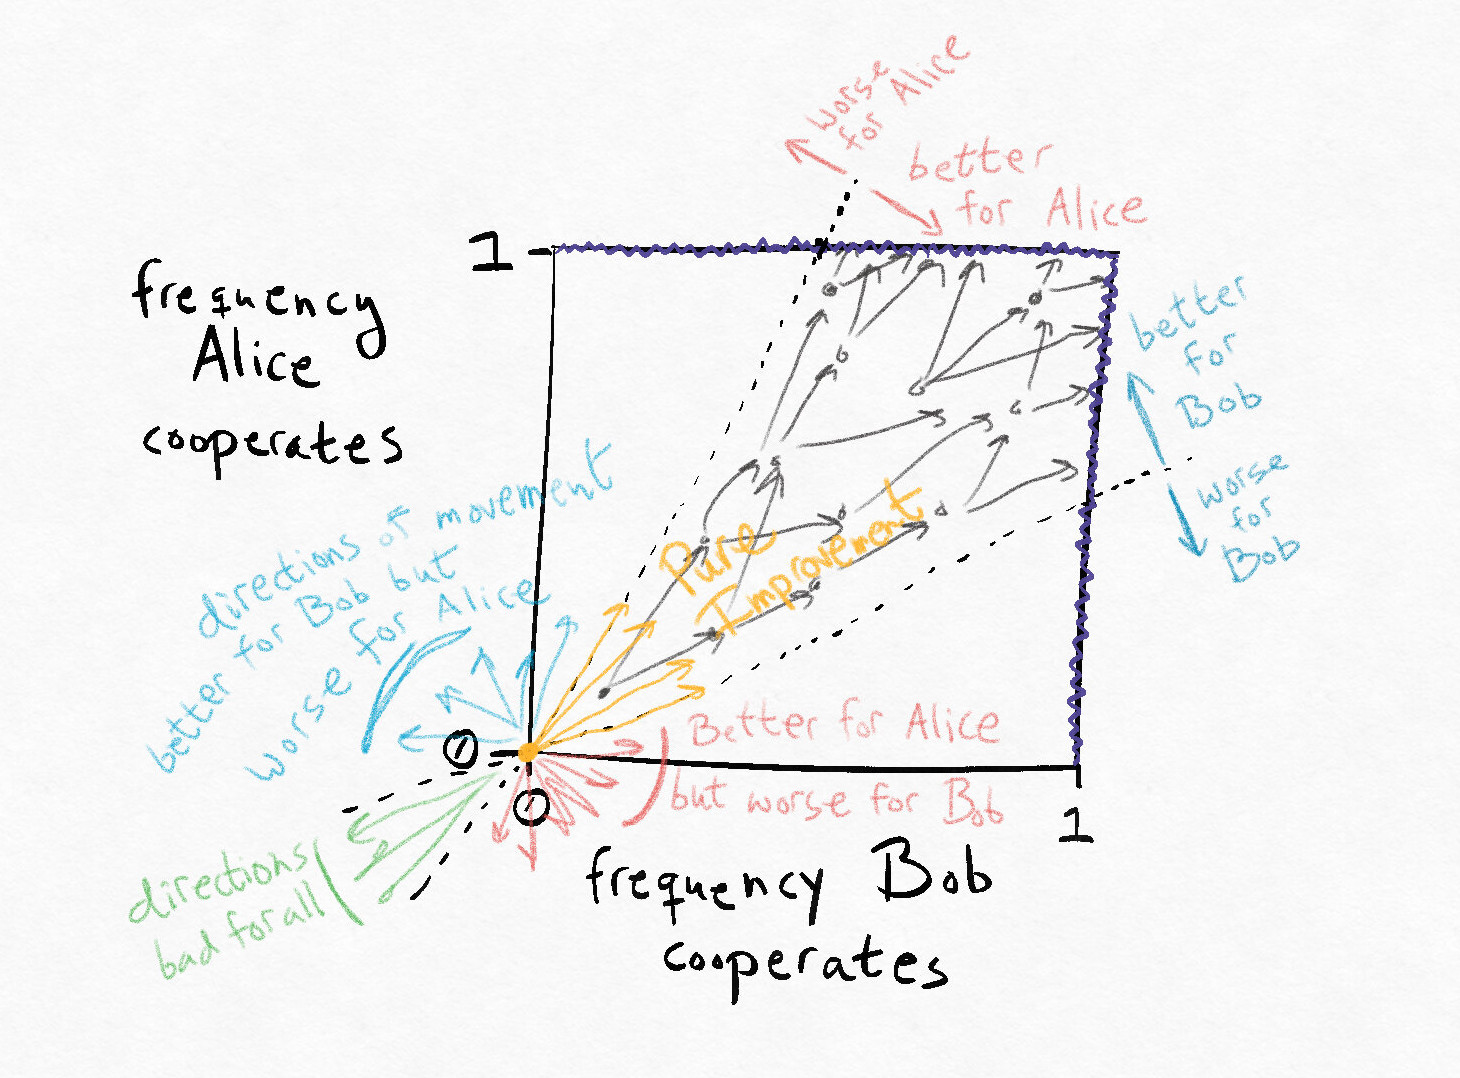 worse
for Alice
better
for Alice
1
frequency
Alice
cooperates
better
for
Bob
worse
for
Bob
directions of movement
better for Bob but
worse for Alice
Pure
Improvement
0
0
Better for Alice
but worse for Bob
1
directions
bad for all
frequency Bob
cooperates